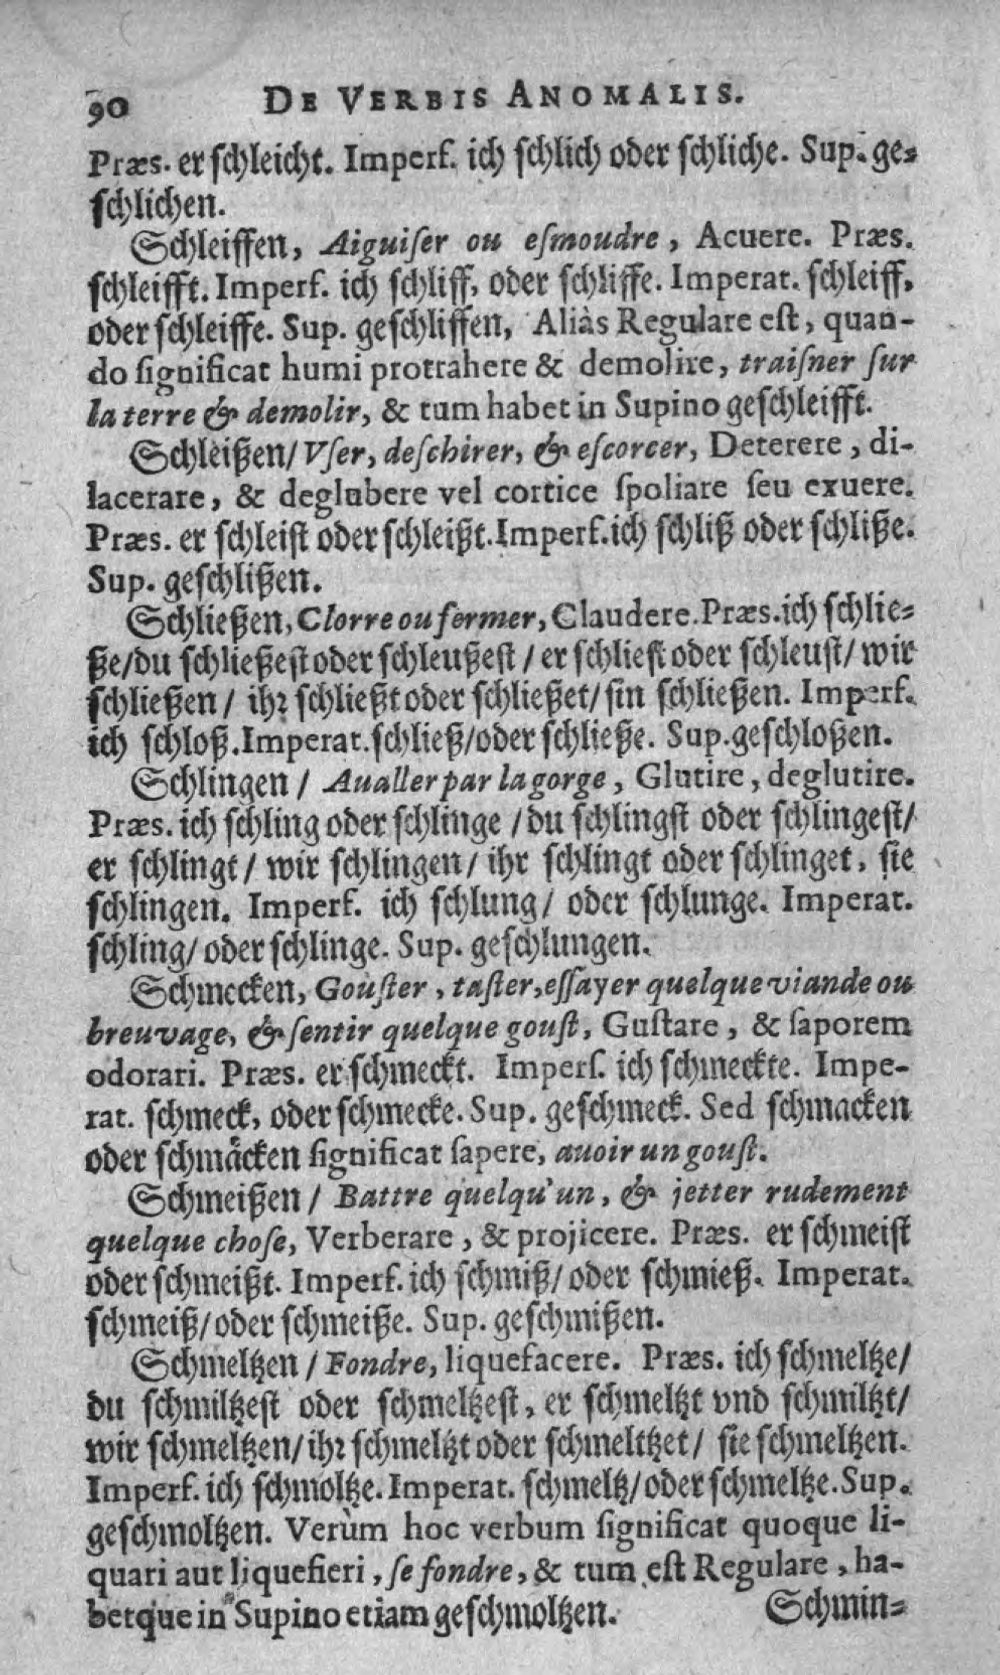 90 DE VERBIS ANOMALIS.
Præs. er ſchleicht. Imperf. ich ſchlich oder ſchliche. Sup. ge-
ſchlichen.
Schleiffen, Aiguiſer ou eſmoudre, Acuere. Præs.
ſchleifft. Imperf. ich ſchliff, oder ſchliffe. Imperat. ſchleiff,
oder ſchleiffe. Sup. geſchliffen, Aliàs Regulare eſt, quan-
do ſignificat humi protrahere & demolire, traiſner ſur
la terre & demolir, & tum habet in Supino geſchleifft.
Schleißen/ Vſer, deſchirer, & eſcorcer, Deterere, di-
lacerare, & deglubere vel cortice ſpoliare ſeu exuere.
Præs. er ſchleiſt oder ſchleißt. Imperf. ich ſchliß oder ſchliße.
Sup. geſchlißen.
Schließen, Clorre ou fermer, Claudere. Præs. ich ſchlie-
ße/ du ſchließeſt oder ſchleußeſt / er ſchlieſt oder ſchleuſt/ wir
ſchließen / ihr ſchließt oder ſchließet/ ſin ſchließen. Imperf.
ich ſchloß. Imperat. ſchließ/oder ſchließe. Sup. geſchloßen.
Schlingen / Aualler par la gorge, Glutire, deglutire.
Præs. ich ſchling oder ſchlinge / du ſchlingſt oder ſchlingeſt/
er ſchlingt / wir ſchlingen / ihr ſchlingt oder ſchlinget, ſie
ſchlingen. Imperf. ich ſchlung / oder ſchlunge. Imperat.
ſchling/ oder ſchlinge. Sup. geſchlungen.
Schmecken, Gouſter, taſter, eſſayer quelque viande ou
breuvage, & ſentir quelque gouſt, Guſtare, & ſaporem
odorari. Præs. er ſchmeckt. Imperf. ich ſchmeckte. Impe-
rat. ſchmeck, oder ſchmecke. Sup. geſchmeck. Sed ſchmacken
oder ſchmåcken ſignificat ſapere, avoir un gouſt.
Schmeißen / Battre quelqu'un, & jetter rudement
quelque choſe, Verberare, & projicere. Præs. er ſchmeiſt
oder ſchmeißt. Imperf. ich ſchmiß/ oder ſchmieß. Imperat.
ſchmeiß/oder ſchmeiße. Sup. geſchmißen.
Schmeltzen / Fondre, liquefacere. Præs. ich ſchmeltze/
du ſchmiltzeſt oder ſchmeltzeſt, er ſchmeltzt vnd ſchmiltzt/
wir ſchmeltzen/ ihr ſchmeltzt oder ſchmeltzet / ſie ſchmeltzen.
Imperf. ich ſchmoltze. Imperat. ſchmeltz/ oder ſchmeltze. Sup.
geſchmoltzen. Verùm hoc verbum ſignificat quoque li-
quari aut liquefieri, ſe fondre, & tum eſt Regulare, ha-
betque in Supino etiam geſchmoltzen.
Schmin-